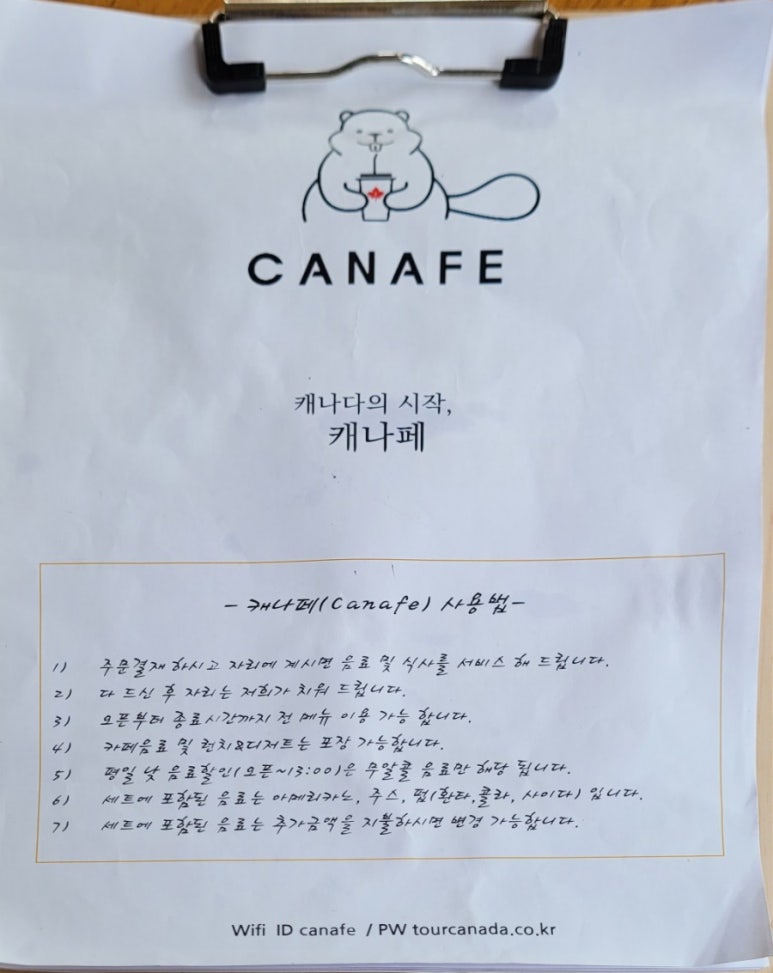 CANAFE
캐나다의 시작,
캐나페
- 캐나페(Canafe) 사용법-
1) 주문결재 하시고 자리에 계시면 음료 및 식사를 서비스 해 드립니다.
2) 다 드신 후 자리는 저희가 치워 드립니다.
3) 오픈부터 종료시간까지 전 메뉴 이용 가능 합니다.
4) 카페음료 및 런치&디저트는 포장 가능합니다.
5) 평일 낮 음료할인(오픈~13:00)은 무알콜 음료만 해당 됩니다.
6) 세트에 포함된 음료는 아메리카노, 주스, 펍(환타,콜라, 사이다) 입니다.
7) 세트에 포함된 음료는 추가금액을 지불하시면 변경 가능합니다.
Wifi ID canafe / PW tourcanada.co.kr